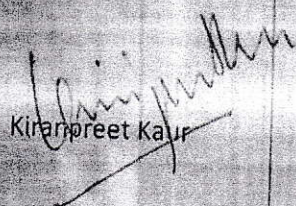 Kiranpreet Kaur